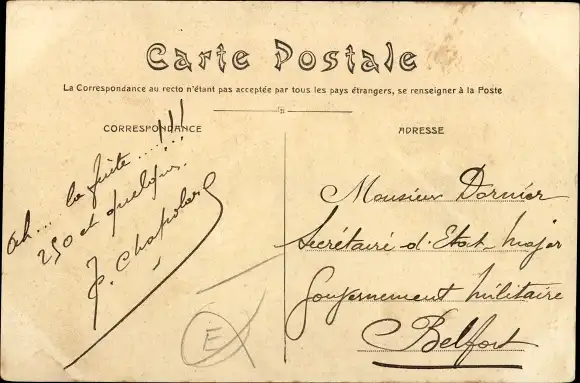 Carte Postale
La Correspondance au recto n'étant pas acceptée par tous les pays étrangers, se renseigner à la Poste
CORRESPONDANCE
ah... la fuite...!!!
250 et quelques.
ADRESSE
Monsieur Dornier
Secrétaire d'Etat-major
Gouvernement militaire
Belfort
E